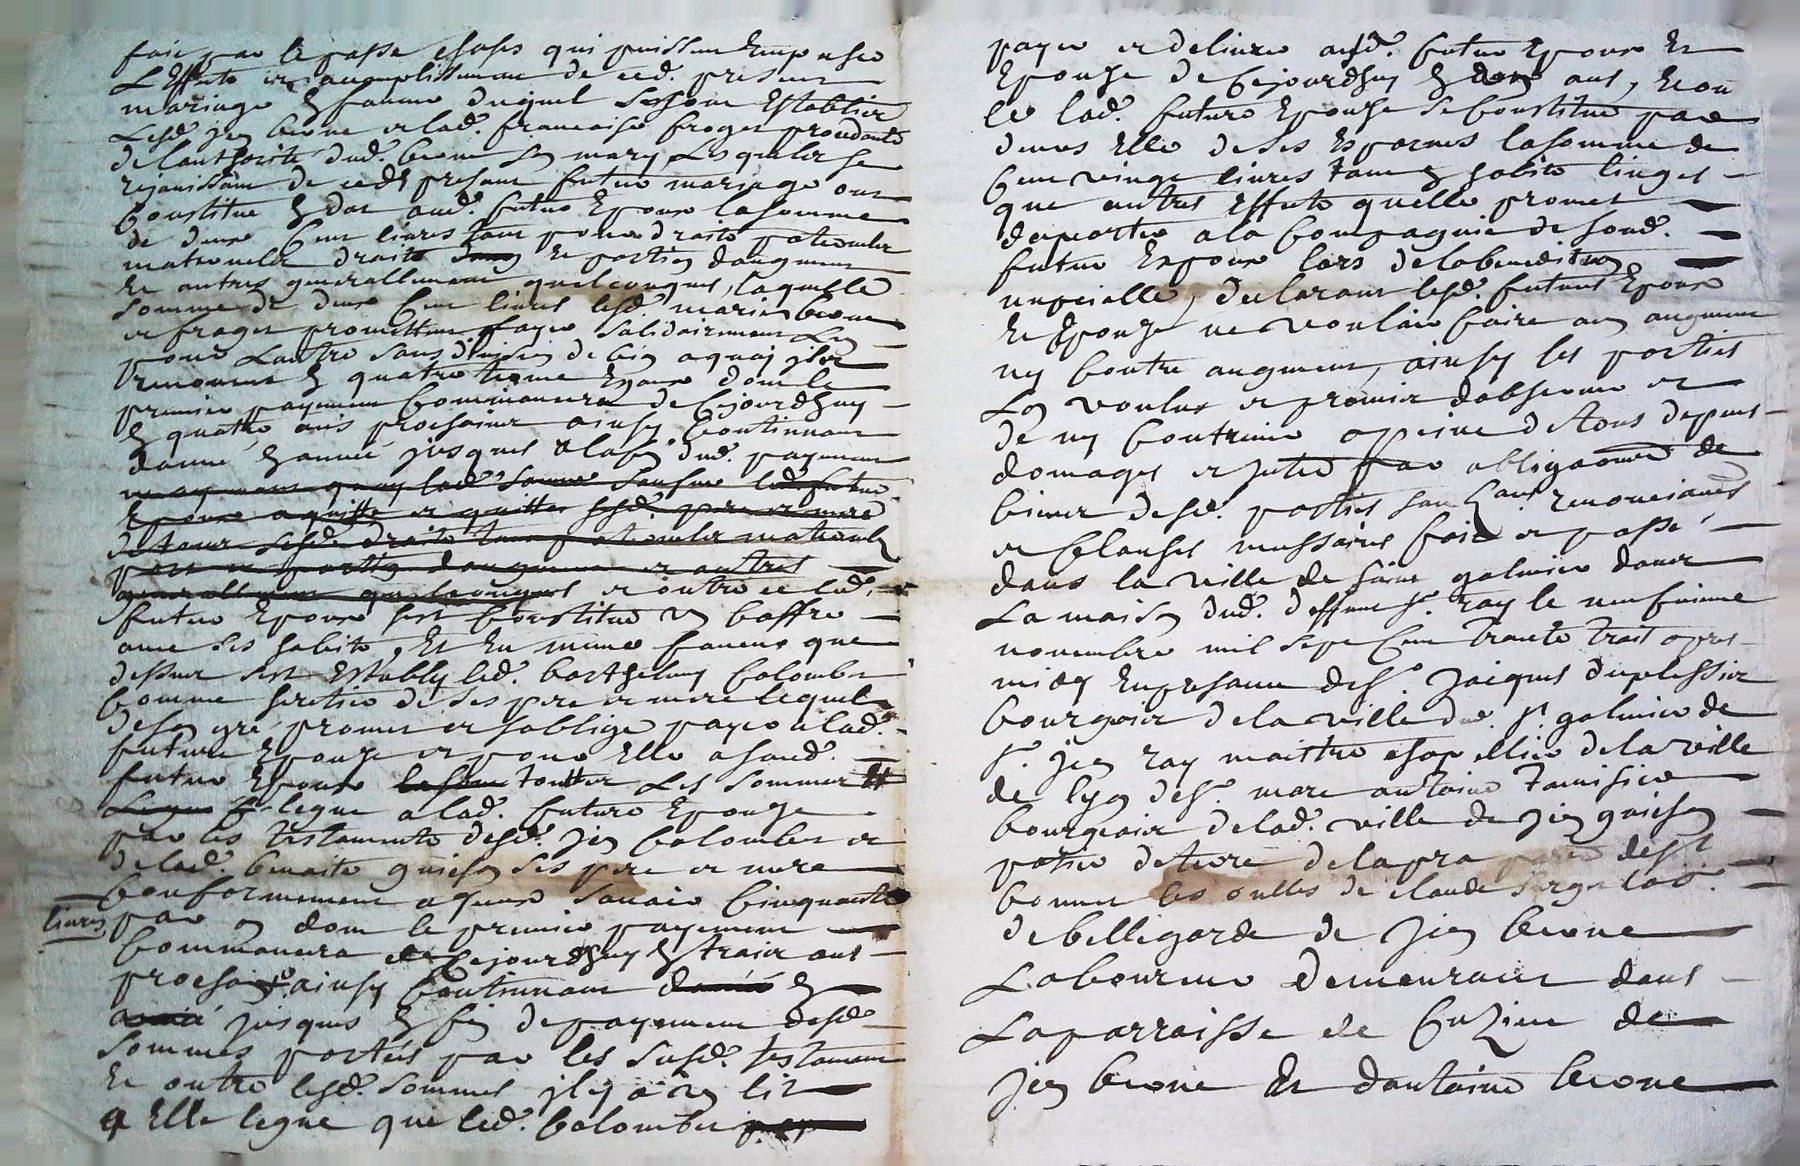 fait par le passe choses qui puissent Empescher
L'Effect et accomplissement de ced. present
mariage En faveur duquel se sont Establis
Lesd. jen berne et lad. francoise froget procedante
de lauthorité dud. berne son mary Lesquels se
rejouissant de ced. present futur mariage ont
Constitué En dot aud. futur Epoux la somme
de deux Cent livres tant pour droits paternels
maternels droits Et portion daugment
Et autres generallement quelconques, laquelle
somme de deux Cent livres lesd. mariés berne
et froget promettent payer solidairement Lun
pour Lautre sans division de bien a quoy ils
renoncent En quatre terme Egaux dont le
premier payement Commancera de Cejourdhuy
En quatre ans prochains ainsy Continuant
dannée En année jusques a la fin dud. payement
lad. somme lad. futur
Epoux a quitté et quitte sesd. pere et mere
de tous sesd. droits tant paternels maternels
part et portion daugment et autres
generallement quelconques et outre ce led.
futur Epoux sest Constitué un Coffre
avec ses habits, Et En meme faveur que
dessus sest Estably led. barthelemy Colombet
Comme heritier de ses pere et mere lequel
de son gré promet et soblige payer a lad.
future Epouse et pour Elle a sond.
futur Epoux la somme touttes Les sommes
legué a lad. future Epouse
par les testaments desd. jen Colombet et
delad. benoite guichon ses pere et mere
Conformement a yceux Scavoir Cinquante
livres
par an dont le premier payement
Commancera de Cejourdhuy En trois ans
prochains ainsy Continuant dannée En
année jusques En fin de payement desd.
sommes portées par les susd. testament
Et outre lesd. sommes jl y a un lit
a Elle legué que led. Colombet
payer et delivrer ausd. futur Epoux Et
Epouse de Cejourdhuy En deux ans, Et outre
ce lad. future Epouse se Constitue par
devers Elle de ses Espargnes la somme de
Cent vingt livres tant En habits linges
que autres Effects quelle promet
daporter a la Compagnie de sond.
futur Expoux lors de la benediction
nupcialle, declarant lesd. futurs Epoux
Et Epouse ne vouloir faire aucun augment
ny Contre augment, ainsy les parties
Lon voulus et promis dobserver et
de ny Contrevenir a peine de tous depens
domages et jnterest par obligaõns de
biens desd. parties renonciaõns
et Clauses necessaires fait et passé
dans la ville de saint galmier dans
La maison dud. deffunt sr. ray le neufvieme
novembre mil sept Cent trante trois apres
midy En presance de sr. Jacques duplessier
bourgeois de la ville dud. st. galmier de
sr. jen ray maitre chapellier de la ville
de lyon de sr. marc antoine tamisier
bourgeois delad. ville de jen guichon
potier de terre de la pra desd.
bonnes de claude
de bellegarde de jen berne
Laboureur demeurant dans
La parroisse de Cuzieu de
jen berne Et dantoine berne